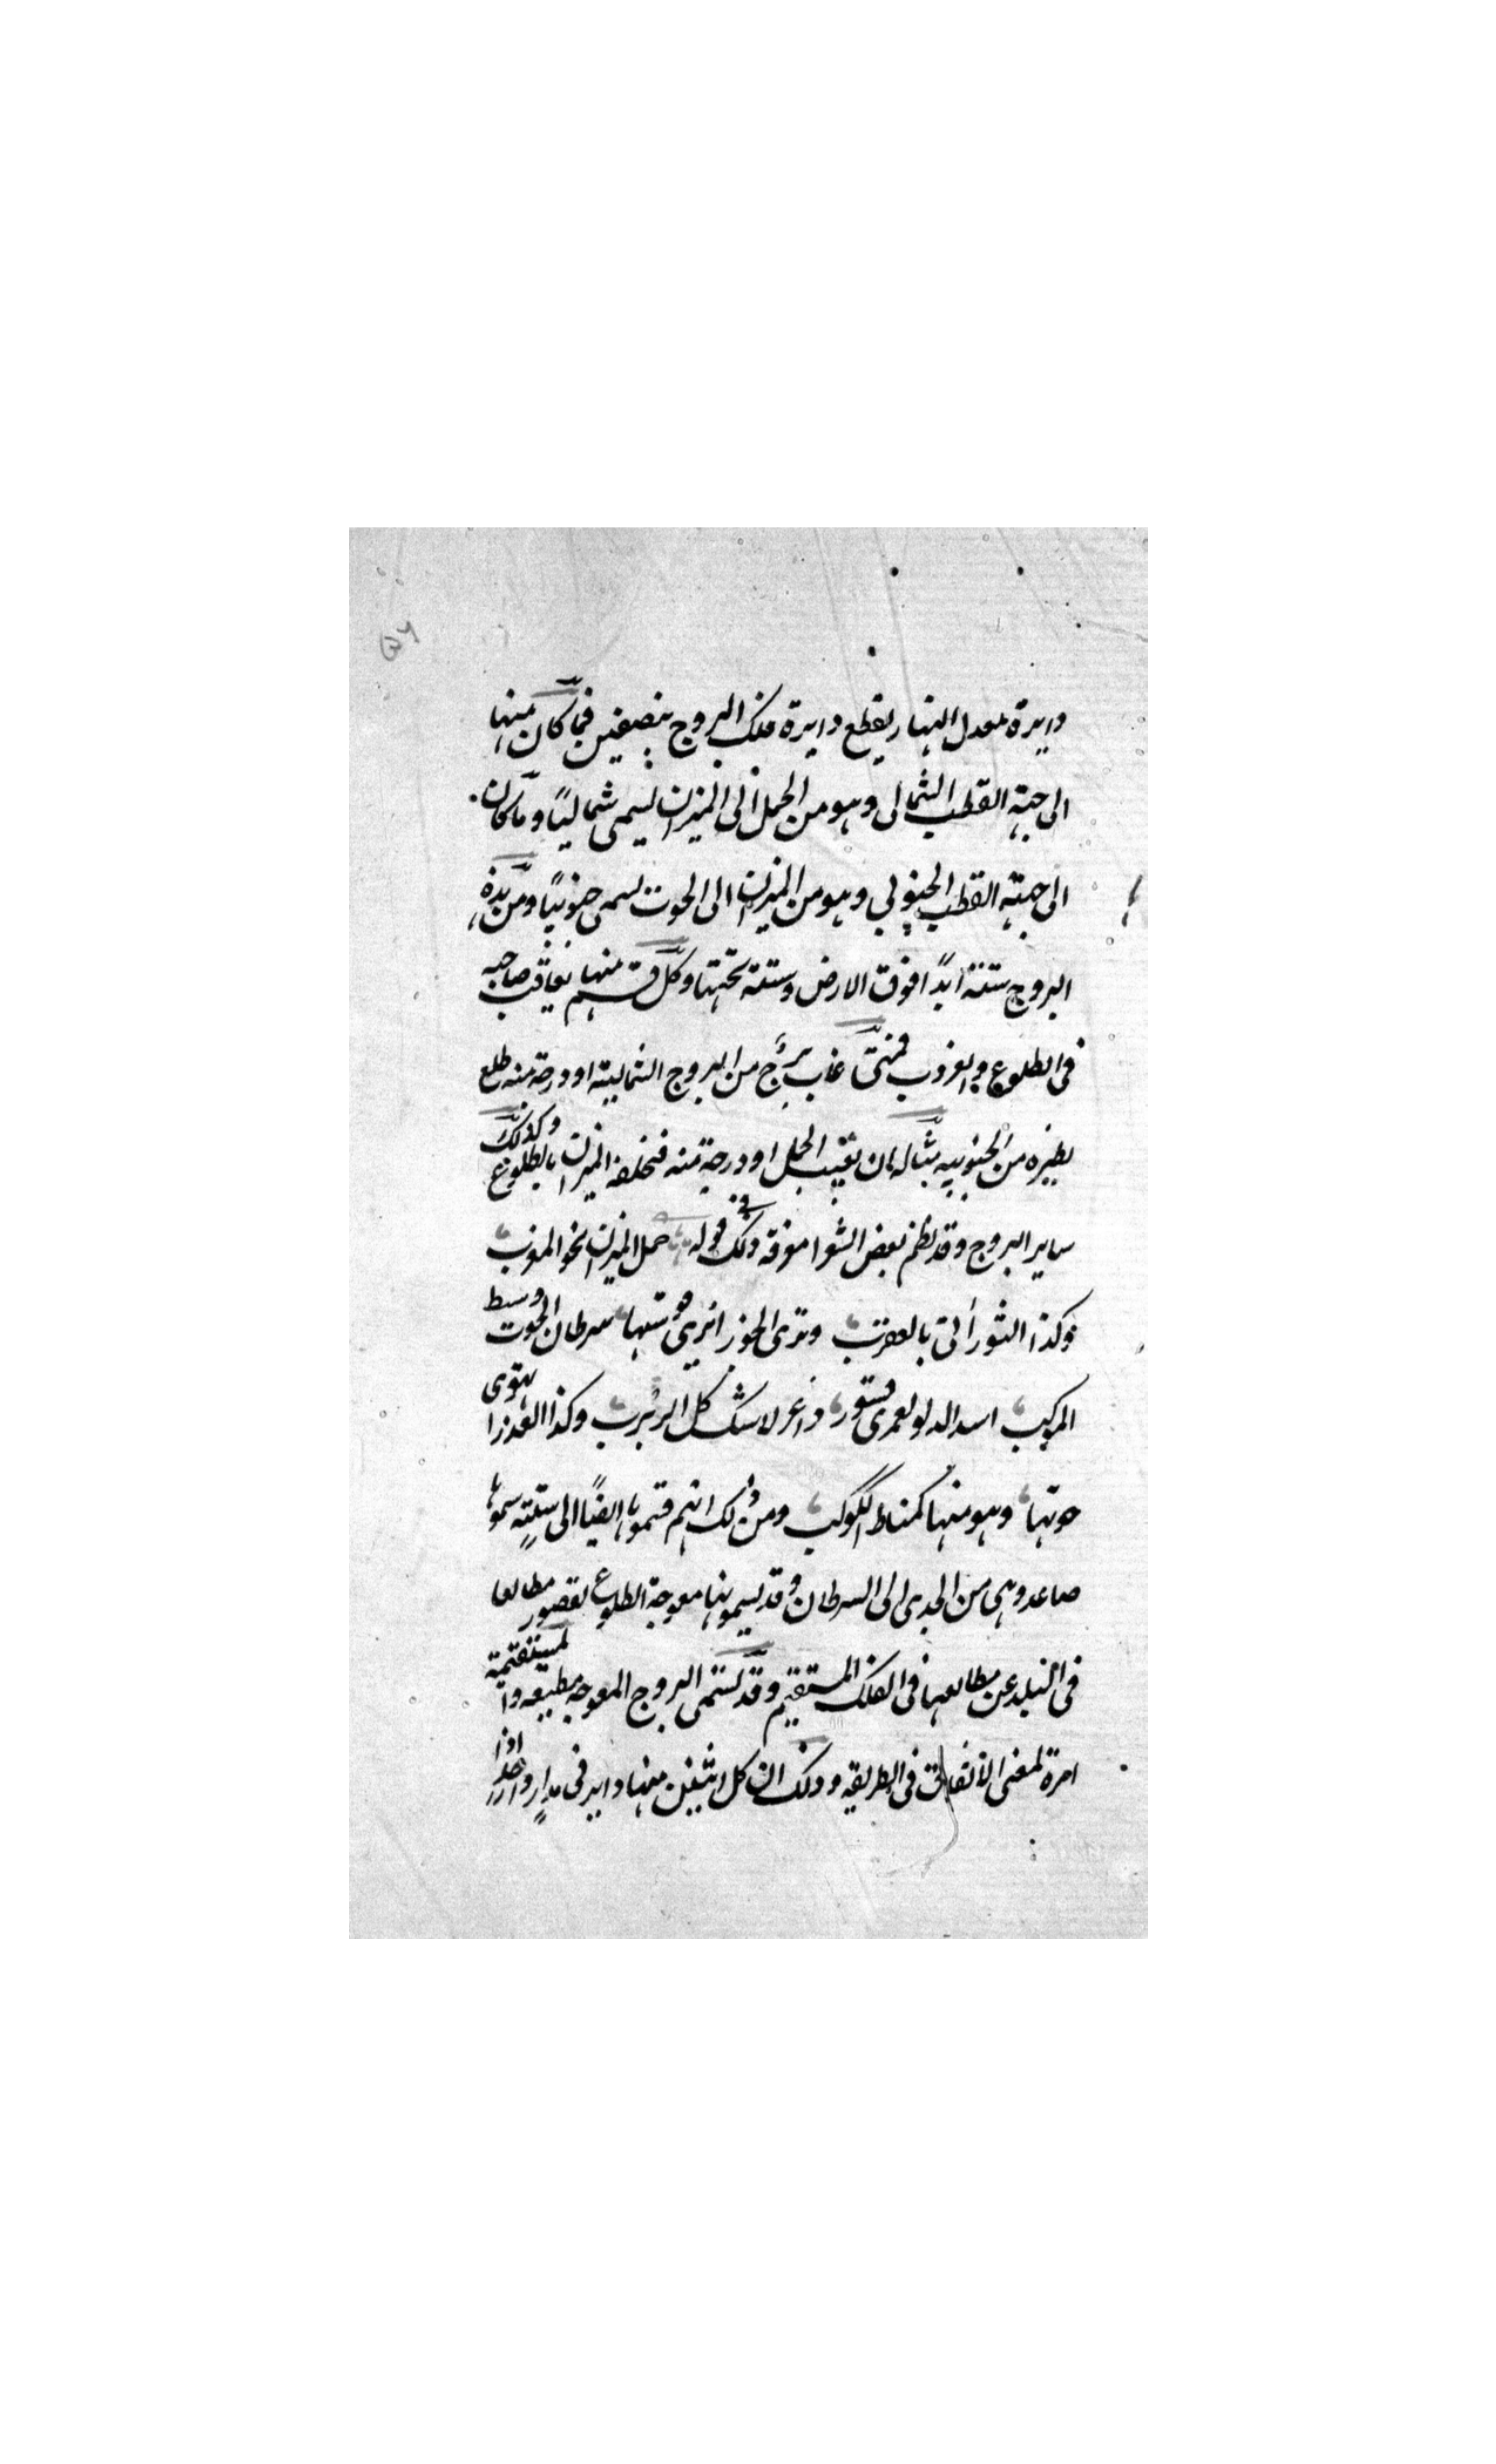 دايرة معدل النهار يقطع دايرة فلك البروج بنصفين فما كان منها
الى جهة القطب الشمالى وهو من الحمل الى الميزان يسمى شماليًا وما كان
الى جهة القطب الجنوبي وهو من الميزان الى الحوت يسمى جنوبيًا ومن هذه
البروج ستة ابدًا فوق الارض وستة تحتها وكل قسم منها يعاقب صاحبه
فى الطلوع والغروب فمتى غاب برج من البروج الشمالية او درجة منه طلع
نظيره من الجنوبيه مثاله ان يغيب الحمل او درجة منه فتخلفه الميزان بالطلوع وكذلك
ساير البروج وقد نظم بعض الشعرا معرفة ذلك فى قوله حمل الميزان نحو المغرب
وكذا الثور اتى بالعقرب وترى الجوزا ترمى قوسها سرطان الحوت وسط
المركب اسد الدلو لعمرى قسور لا شك كل الربرب وكذا العذرا تهوى
حوتها وهو منها كمناط الكوكب ومن ذلك انهم قسموها ايضًا الى ستة سموها
صاعد وهى من الجدى الى السرطان وقد يسمونها معوجة الطلوع لقصور مطالعها
فى البلد عن مطالعها فى الفلك المستقيم وقد تسمى البروج المعوجه مطيعه والمستقيمة
امرة لمعنى الاتفاق فى الطريقه وذلك ان كل اثنين منها داير فى مدار واحد اذا